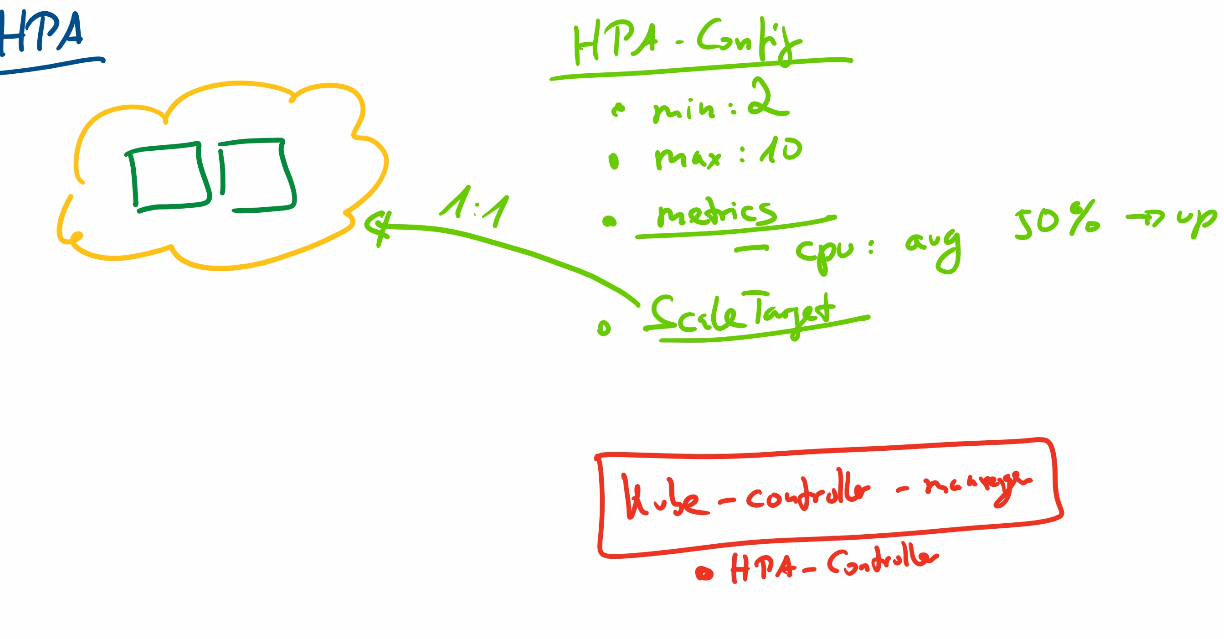 HPA
HPA-Config
• min: 2
• max: 10
• metrics
– cpu: avg 50% → up
1:1
• ScaleTarget
Kube-controller-manager
• HPA-Controller